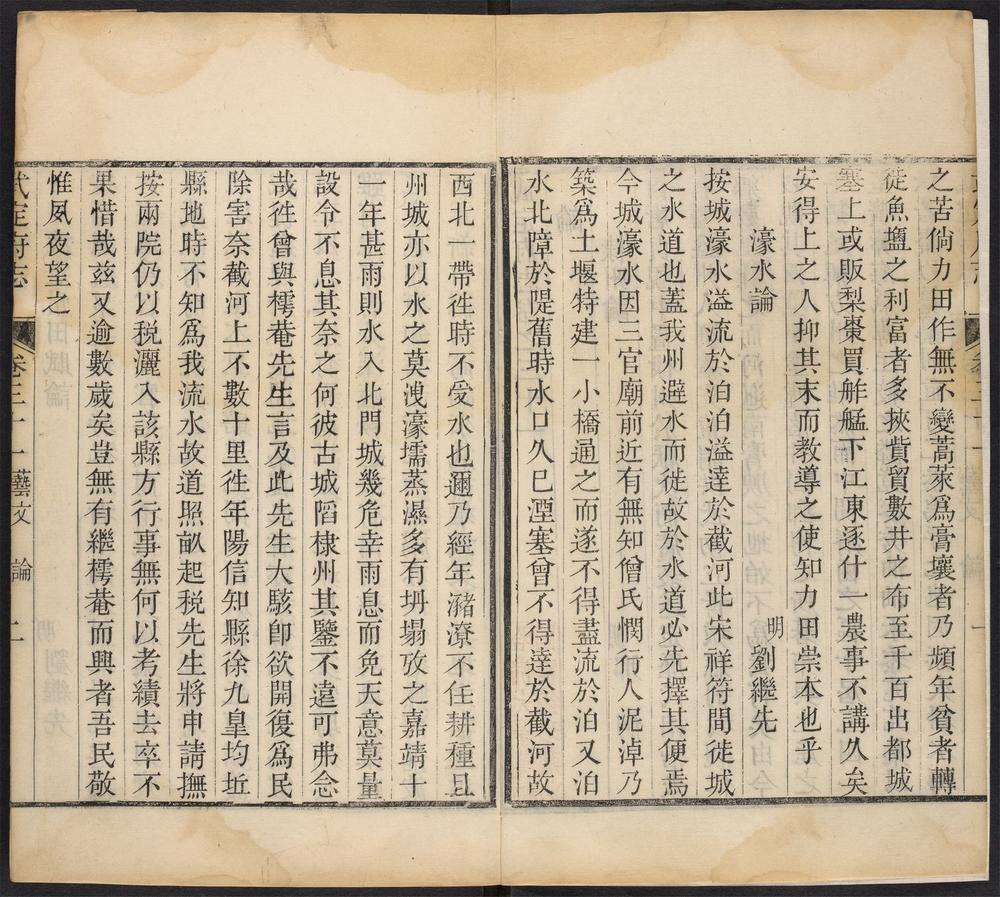 之苦倘力田作無不變蒿萊爲膏壤者乃頻年貧者轉
徙魚鹽之利富者多挾貲貿數井之布至千百出都城
塞上或販梨棗買舴艋下江東逐什一農事不講久矣
安得上之人抑其末而教導之使知力田崇本也乎
濠水論 明 劉繼先
按城濠水溢流於泊泊溢達於截河此宋祥符間徙城
之水道也蓋我州避水而徙故於水道必先擇其便焉
今城濠水因三官廟前近有無知僧氏憫行人泥淖乃
築爲土堰特建一小橋通之而遂不得盡流於泊又泊
水北障於隄舊時水口久已湮塞曾不得達於截河故
西北一帶徃時不受水也邇乃經年瀦潦不任耕種且
州城亦以水之莫洩濠壖蒸濕多有坍塌攷之嘉靖十
一年甚雨則水入北門城幾危幸雨息而免天意莫量
設令不息其奈之何彼古城陷棣州其鑒不遠可弗念
哉徃曾與樗菴先生言及此先生大駭卽欲開復爲民
除害奈截河上不數十里徃年陽信知縣徐九皐均坵
縣地時不知爲我流水故道照畝起税先生將申請撫
按兩院仍以税灑入該縣方行事無何以考績去卒不
果惜哉兹又逾數歲矣豈無有繼樗菴而興者吾民敬
惟夙夜望之
武定府志 卷三十一藝文 論 二